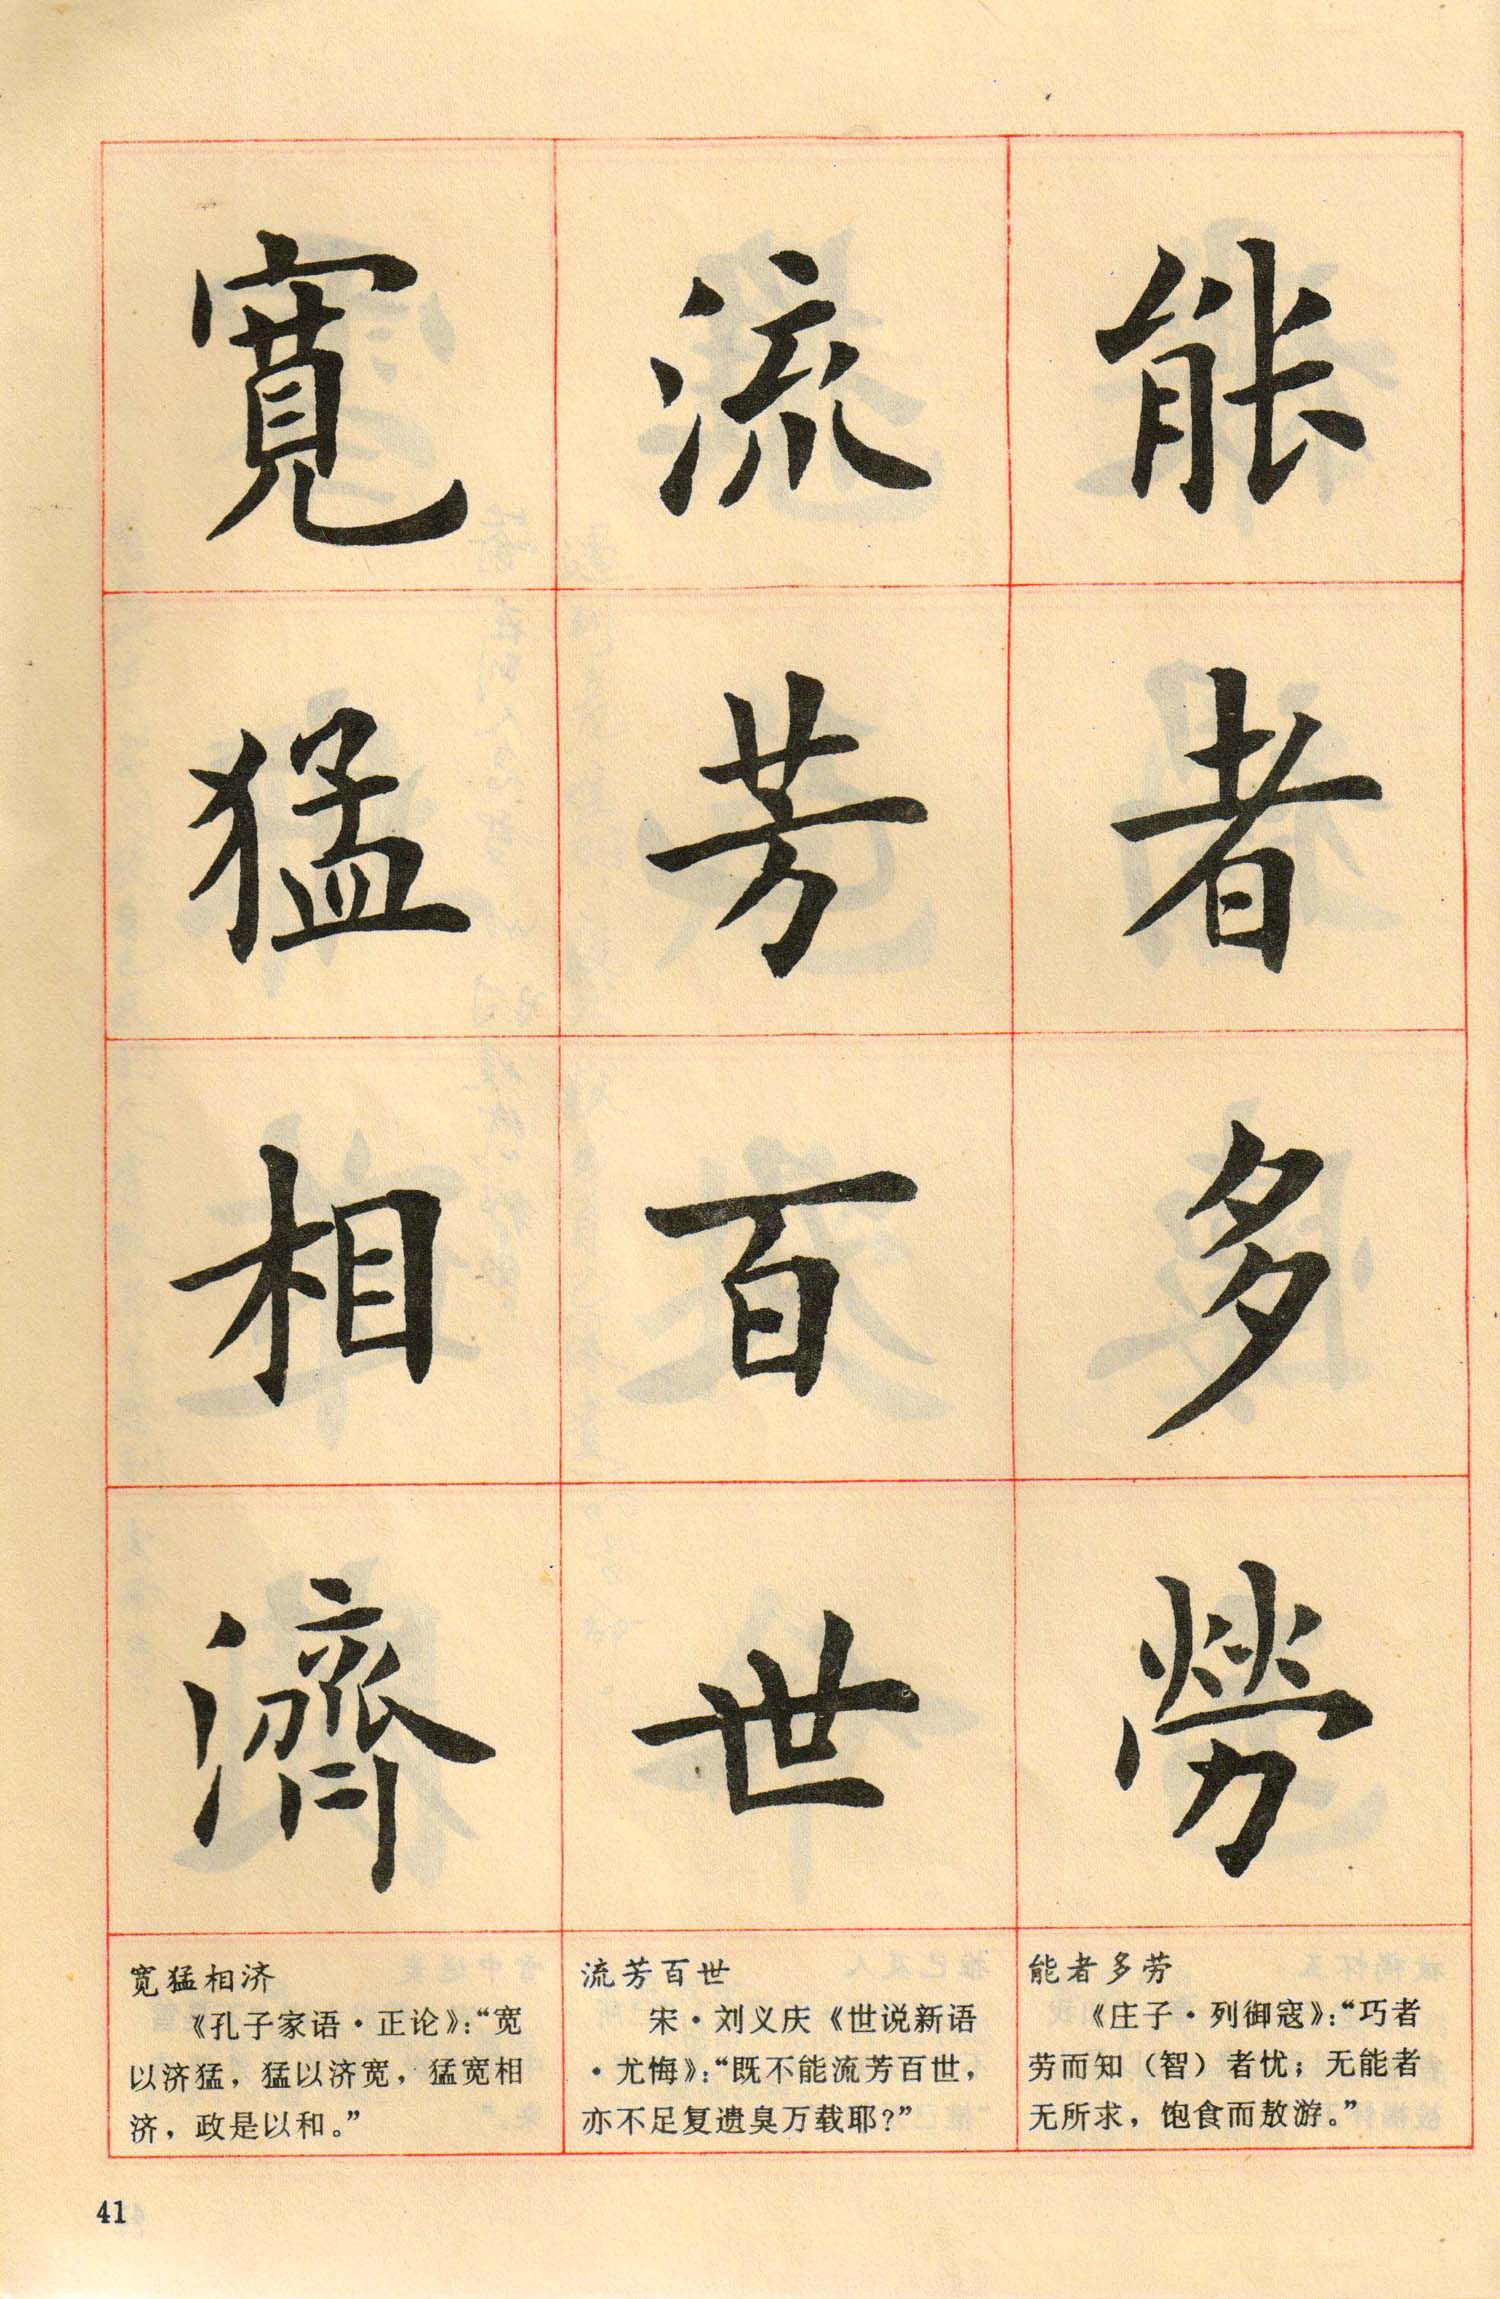 能者多勞
流芳百世
寬猛相濟
能者多劳
《庄子·列御寇》：“巧者
劳而知（智）者忧；无能者
无所求，饱食而敖游。”
流芳百世
宋·刘义庆《世说新语
·尤悔》：“既不能流芳百世，
亦不足复遗臭万载耶？”
宽猛相济
《孔子家语·正论》：“宽
以济猛，猛以济宽，猛宽相
济，政是以和。”
41